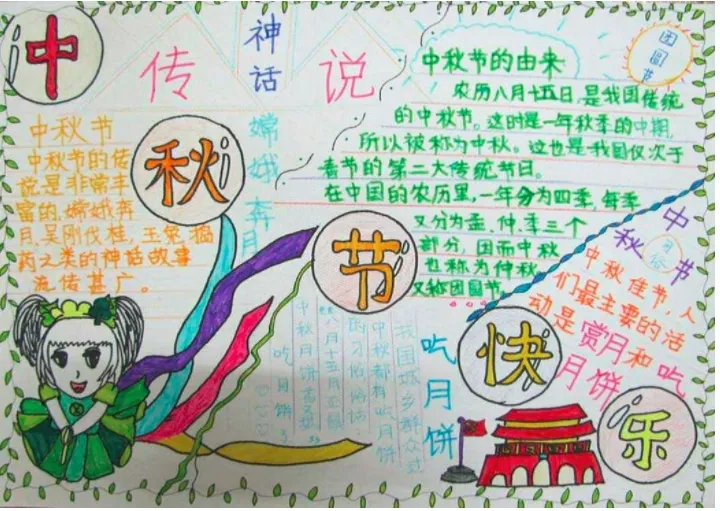 中
秋
节
快
乐
神话
传说
嫦娥奔月
中秋节
中秋节的传
说是非常丰
富的,嫦娥奔
月,吴刚伐桂,玉兔捣
药之类的神话故事
流传甚广。
团圆节
中秋节的由来
农历八月十五日,是我国传统
的中秋节。这时是一年秋季的中期,
所以被称为中秋。这也是我国仅次于
春节的第二大传统节日。
在中国的农历里,一年分为四季,每季
又分为孟、仲、季三个
部分,因而中秋
也称为仲秋
又称团圆节
中秋节
习俗
中秋佳节,人
们最主要的活
动是赏月和吃
月饼
吃月饼
我国城乡群众过
中秋都有吃月饼
的习俗俗话
八月十五月正圆
中秋月饼香又甜
吃月饼